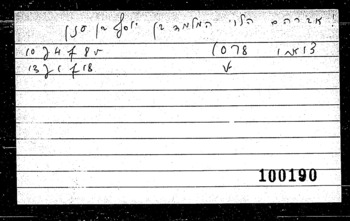 אברהם הלוי המלמד בן יוסף בן
10 J 4 f 8 v 1078
13 J 1 f 18 v
100190